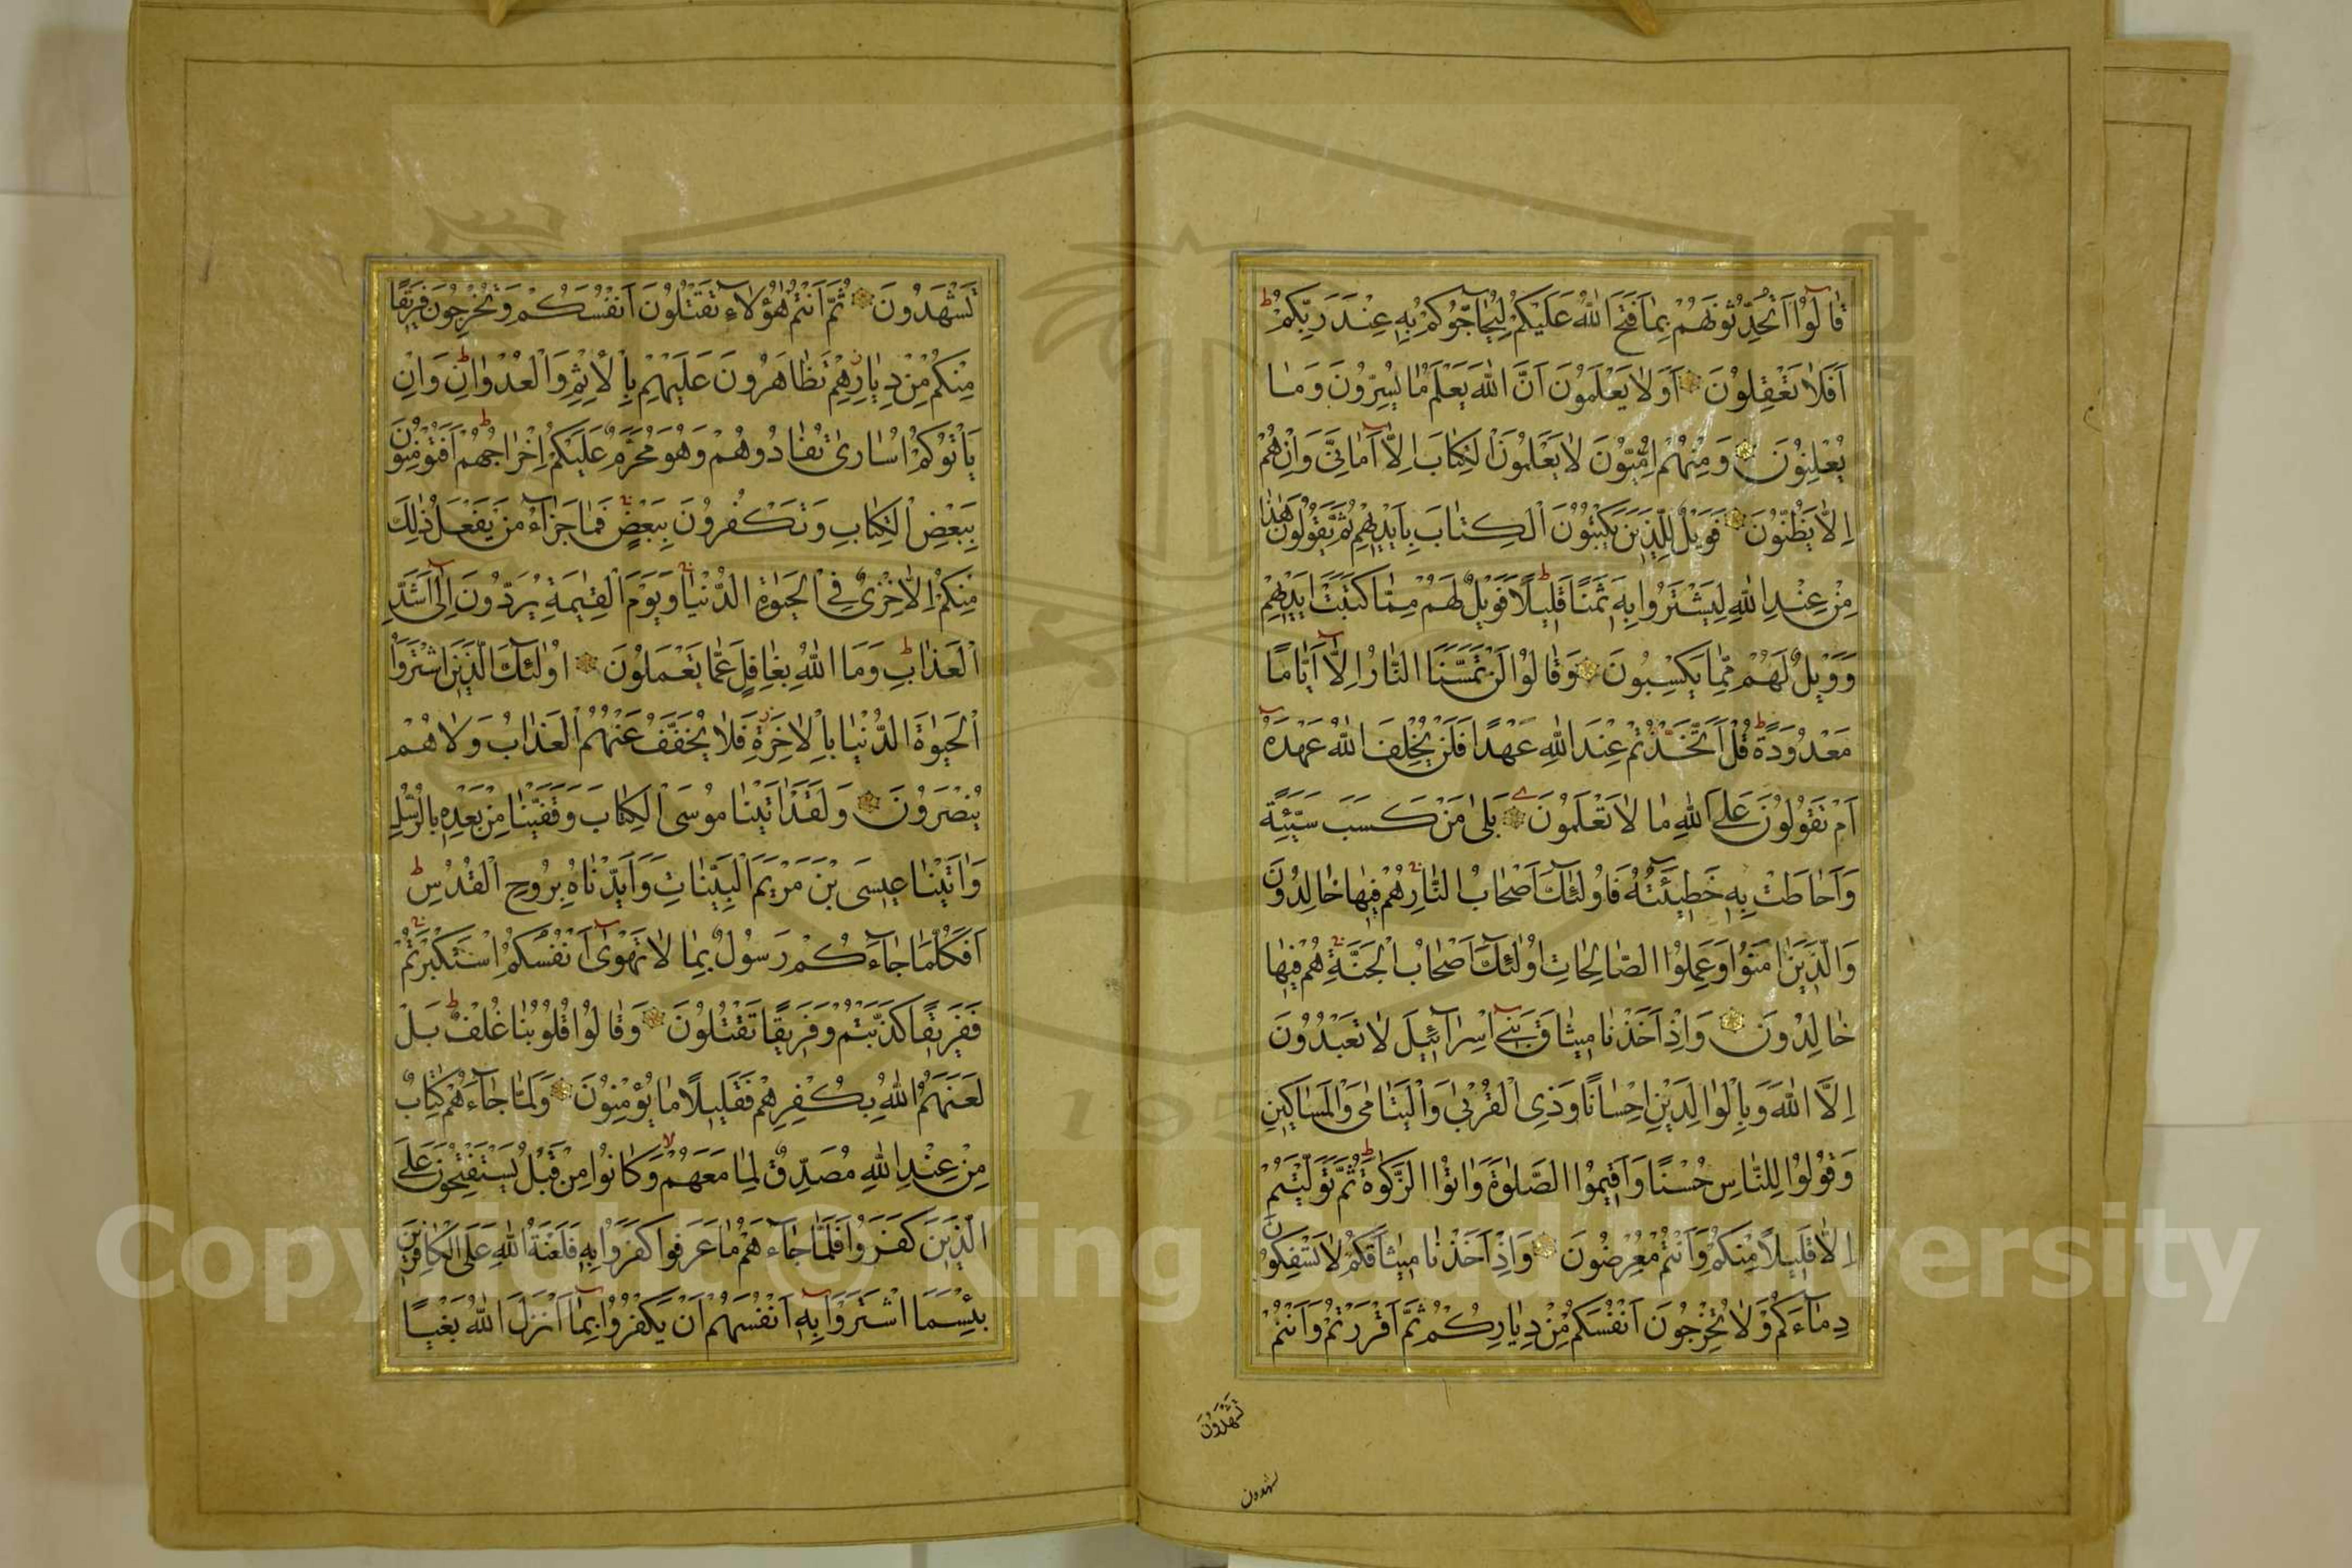 قَالُوا أَتُحَدِّثُونَهُمْ بِمَا فَتَحَ اللَّهُ عَلَيْكُمْ لِيُحَاجُّوكُمْ بِهِ عِنْدَ رَبِّكُمْ ط
أَفَلَا تَعْقِلُونَ أَوَلَا يَعْلَمُونَ أَنَّ اللَّهَ يَعْلَمُ مَا يُسِرُّونَ وَمَا
يُعْلِنُونَ وَمِنْهُمْ أُمِّيُّونَ لَا يَعْلَمُونَ الْكِتَابَ إِلَّا أَمَانِيَّ وَإِنْ هُمْ
إِلَّا يَظُنُّونَ فَوَيْلٌ لِلَّذِينَ يَكْتُبُونَ الْكِتَابَ بِأَيْدِيهِمْ ثُمَّ يَقُولُونَ هَٰذَا
مِنْ عِنْدِ اللَّهِ لِيَشْتَرُوا بِهِ ثَمَنًا قَلِيلًا ط فَوَيْلٌ لَهُمْ مِمَّا كَتَبَتْ أَيْدِيهِمْ
وَوَيْلٌ لَهُمْ مِمَّا يَكْسِبُونَ وَقَالُوا لَنْ تَمَسَّنَا النَّارُ إِلَّا أَيَّامًا
مَعْدُودَةً ط قُلْ أَتَّخَذْتُمْ عِنْدَ اللَّهِ عَهْدًا فَلَنْ يُخْلِفَ اللَّهُ عَهْدَهُ
أَمْ تَقُولُونَ عَلَى اللَّهِ مَا لَا تَعْلَمُونَ بَلَىٰ مَنْ كَسَبَ سَيِّئَةً
وَأَحَاطَتْ بِهِ خَطِيئَتُهُ فَأُولَٰئِكَ أَصْحَابُ النَّارِ هُمْ فِيهَا خَالِدُونَ
وَالَّذِينَ آمَنُوا وَعَمِلُوا الصَّالِحَاتِ أُولَٰئِكَ أَصْحَابُ الْجَنَّةِ هُمْ فِيهَا
خَالِدُونَ وَإِذْ أَخَذْنَا مِيثَاقَ بَنِي إِسْرَائِيلَ لَا تَعْبُدُونَ
إِلَّا اللَّهَ وَبِالْوَالِدَيْنِ إِحْسَانًا وَذِي الْقُرْبَىٰ وَالْيَتَامَىٰ وَالْمَسَاكِينِ
وَقُولُوا لِلنَّاسِ حُسْنًا وَأَقِيمُوا الصَّلَوٰةَ وَآتُوا الزَّكَوٰةَ ط ثُمَّ تَوَلَّيْتُمْ
إِلَّا قَلِيلًا مِنْكُمْ وَأَنْتُمْ مُعْرِضُونَ وَإِذْ أَخَذْنَا مِيثَاقَكُمْ لَا تَسْفِكُونَ
دِمَاءَكُمْ وَلَا تُخْرِجُونَ أَنْفُسَكُمْ مِنْ دِيَارِكُمْ ثُمَّ أَقْرَرْتُمْ وَأَنْتُمْ
تَشْهَدُونَ
تشهدون
تَشْهَدُونَ ثُمَّ أَنْتُمْ هَٰؤُلَاءِ تَقْتُلُونَ أَنْفُسَكُمْ وَتُخْرِجُونَ فَرِيقًا
مِنْكُمْ مِنْ دِيَارِهِمْ ز تَظَاهَرُونَ عَلَيْهِمْ بِالْإِثْمِ وَالْعُدْوَانِ ط وَإِنْ
يَأْتُوكُمْ أُسَارَىٰ تُفَادُوهُمْ وَهُوَ مُحَرَّمٌ عَلَيْكُمْ إِخْرَاجُهُمْ ط أَفَتُؤْمِنُونَ
بِبَعْضِ الْكِتَابِ وَتَكْفُرُونَ بِبَعْضٍ فَمَا جَزَاءُ مَنْ يَفْعَلُ ذَٰلِكَ
مِنْكُمْ إِلَّا خِزْيٌ فِي الْحَيَوٰةِ الدُّنْيَا وَيَوْمَ الْقِيٰمَةِ يُرَدُّونَ إِلَىٰ أَشَدِّ
الْعَذَابِ ط وَمَا اللَّهُ بِغَافِلٍ عَمَّا يَعْمَلُونَ أُولَٰئِكَ الَّذِينَ اشْتَرَوُا
الْحَيَوٰةَ الدُّنْيَا بِالْآخِرَةِ ز فَلَا يُخَفَّفُ عَنْهُمُ الْعَذَابُ وَلَا هُمْ
يُنْصَرُونَ وَلَقَدْ آتَيْنَا مُوسَى الْكِتَابَ وَقَفَّيْنَا مِنْ بَعْدِهِ بِالرُّسُلِ
وَآتَيْنَا عِيسَى بْنَ مَرْيَمَ الْبَيِّنَاتِ وَأَيَّدْنَاهُ بِرُوحِ الْقُدُسِ ط
أَفَكُلَّمَا جَاءَكُمْ رَسُولٌ بِمَا لَا تَهْوَىٰ أَنْفُسُكُمُ اسْتَكْبَرْتُمْ
فَفَرِيقًا كَذَّبْتُمْ وَفَرِيقًا تَقْتُلُونَ وَقَالُوا قُلُوبُنَا غُلْفٌ ط بَلْ
لَعَنَهُمُ اللَّهُ بِكُفْرِهِمْ فَقَلِيلًا مَا يُؤْمِنُونَ وَلَمَّا جَاءَهُمْ كِتَابٌ
مِنْ عِنْدِ اللَّهِ مُصَدِّقٌ لِمَا مَعَهُمْ لا وَكَانُوا مِنْ قَبْلُ يَسْتَفْتِحُونَ عَلَى
الَّذِينَ كَفَرُوا فَلَمَّا جَاءَهُمْ مَا عَرَفُوا كَفَرُوا بِهِ فَلَعْنَةُ اللَّهِ عَلَى الْكَافِرِينَ
بِئْسَمَا اشْتَرَوْا بِهِ أَنْفُسَهُمْ أَنْ يَكْفُرُوا بِمَا أَنْزَلَ اللَّهُ بَغْيًا
Copyright © King Saud University
195